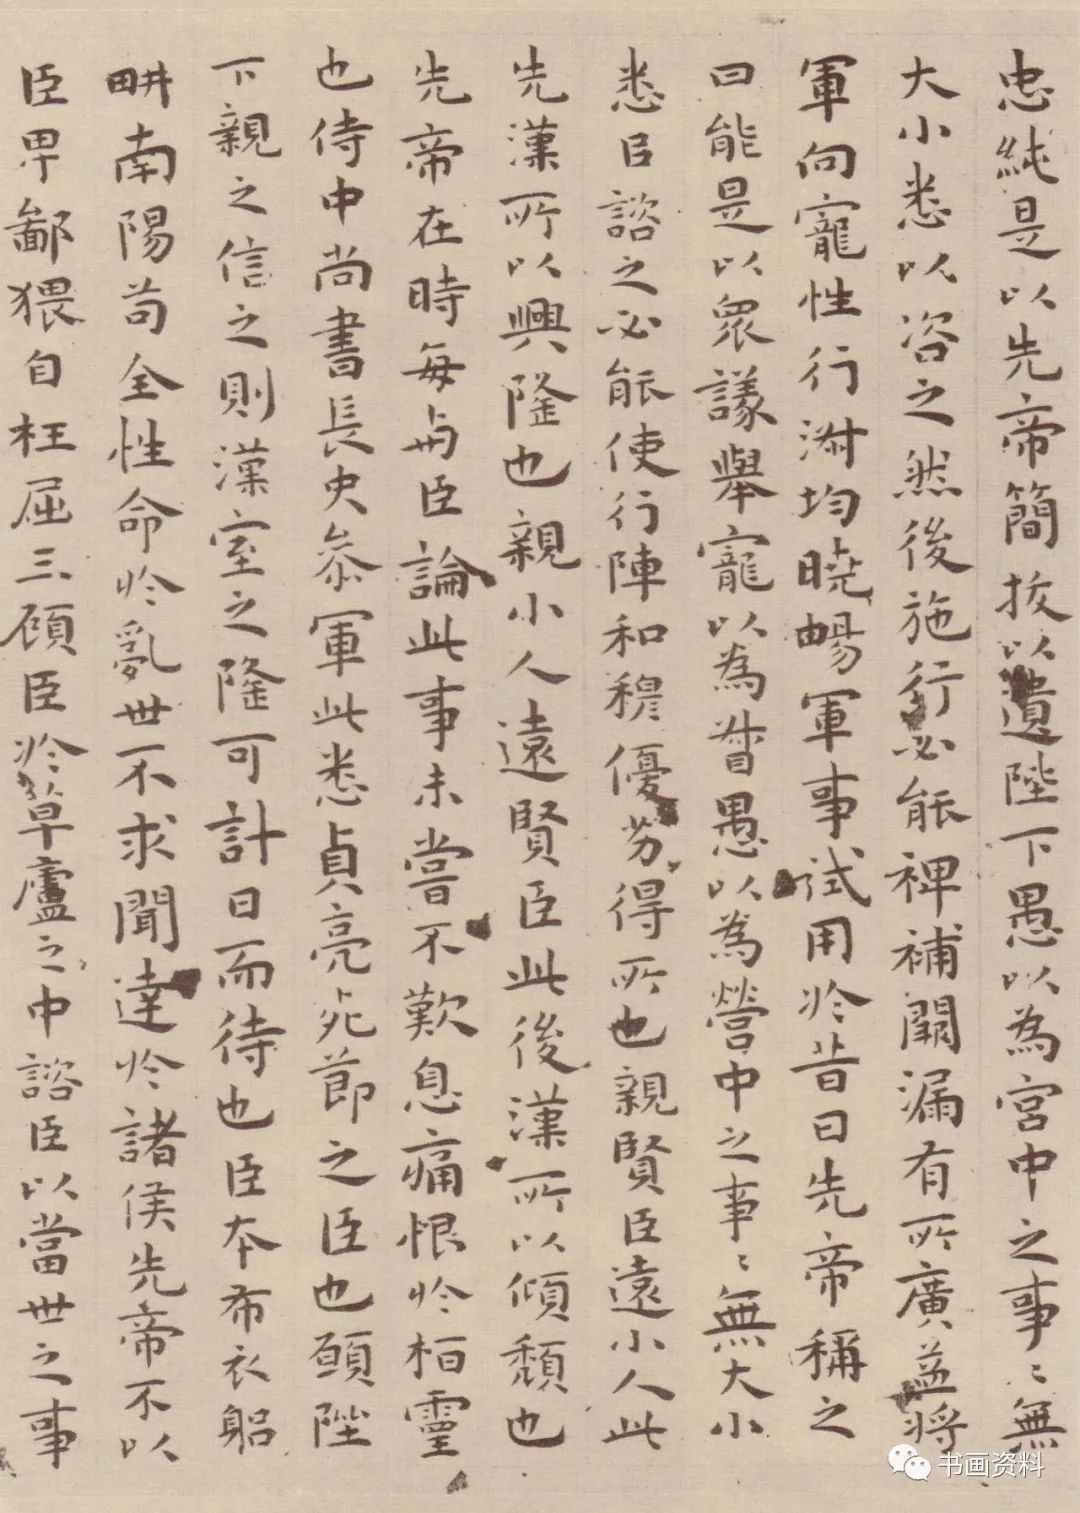 忠純是以先帝簡拔以遺陛下愚以為宮中之事〻無
大小悉以咨之然後施行必能裨補闕漏有所廣益将
軍向寵性行淑均曉暢軍事試用於昔日先帝稱之
曰能是以眾議舉寵以為督愚以為營中之事〻無大小
悉臣諮之必能使行陣和穆優劣得所也親賢臣遠小人此
先漢所以興隆也親小人遠賢臣此後漢所以傾頹也
先帝在時每與臣論此事未嘗不歎息痛恨於栢靈
也侍中尚書長史叅軍此悉貞亮死節之臣也願陛
下親之信之則漢室之隆可計日而待也臣本布衣躬
畊南陽苟全性命於亂世不求聞達於諸侯先帝不以
臣卑鄙猥自枉屈三顧臣於草廬之中諮臣以當世之事
书画资料